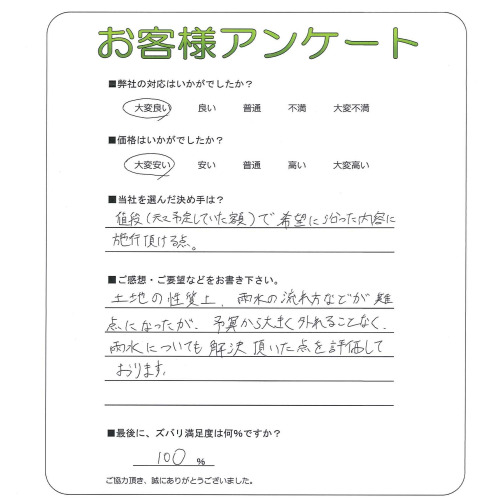 お客様アンケート
■弊社の対応はいかがでしたか？
大変良い 良い 普通 不満 大変不満
■価格はいかがでしたか？
大変安い 安い 普通 高い 大変高い
■当社を選んだ決め手は？
値段(予定していた額)で希望に沿った内容に
施行頂ける点。
■ご感想・ご要望などをお書き下さい。
土地の性質上、雨水の流れ方などが難
点になったが、予算から大きく外れることなく、
雨水についても解決頂いた点を評価して
おります。
■最後に、ズバリ満足度は何%ですか？
100 %
ご協力頂き、誠にありがとうございました。